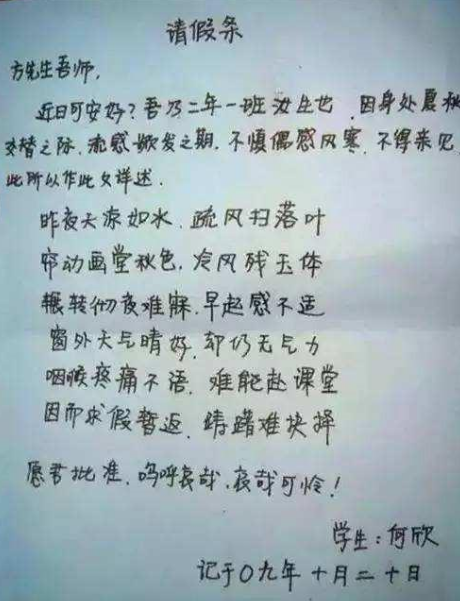 请假条
方先生吾师,
近日可安好?吾乃二年一班汝生也,因身处夏秋
交替之际,流感歘发之期,不慎偶感风寒,不得亲见,
此所以作此文详述.
昨夜天凉如水,疏风扫落叶
帘动画堂秋色,冷风残玉体
辗转彻夜难寐,早起感不适
窗外天气晴好,却仍无气力
咽喉疼痛不语,难能赴课堂
因而求假暂返,踌躇难抉择
愿君批准,呜呼哀哉,哀哉可怜!
学生:何欣
记于〇九年十月二十日